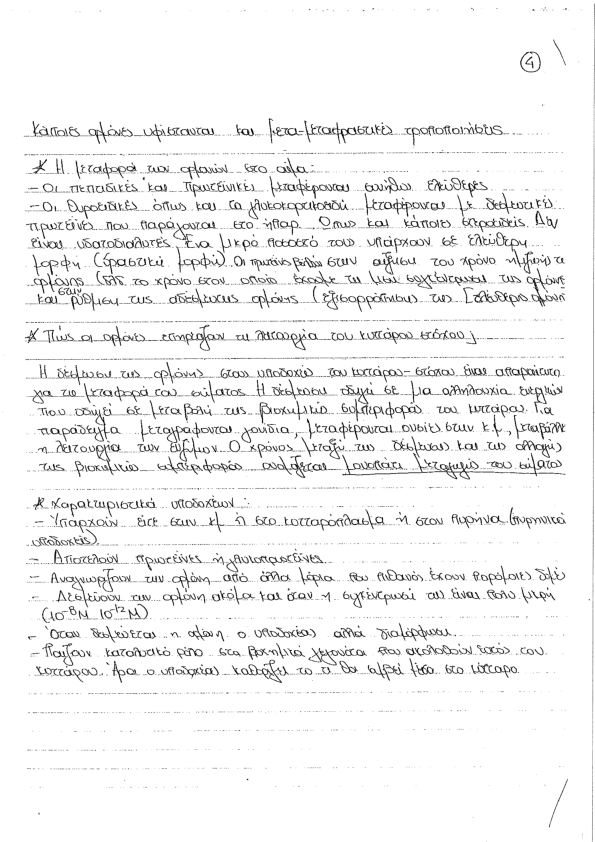 4
Κάποιες ορμόνες υφίστανται και μετα-μεταφραστικές τροποποιήσεις
* Η μεταφορά των ορμονών στο αίμα:
- Οι πεπτιδικές και πρωτεϊνικές μεταφέρονται συνήθως ελεύθερες
- Οι θυροειδικές όπως και τα γλυκοκορτικοειδή μεταφέρονται με δεσμευτικές
πρωτεΐνες που παράγονται στο ήπαρ. Όπως και κάποιες στεροειδείς. Δεν
είναι υδατοδιαλυτές. Ένα μικρό ποσοστό τους υπάρχουν σε ελεύθερη
μορφή (δραστική μορφή). Οι πρωτεΐνες βοηθούν στην αύξηση του χρόνο ημιζωής της
ορμόνης (δηλ. το χρόνο στον οποίο έχουμε τη μισή συγκέντρωση της ορμόνης
και στην ρύθμιση της αδέσμευτης ορμόνης (εξισορρόπησης της ελεύθερης ορμόνης
* Πώς οι ορμόνες επηρεάζουν τη λειτουργία του κυττάρου στόχου;
Η δέσμευση της ορμόνης στους υποδοχείς του κυττάρου-στόχου είναι απαραίτητη
για τη μεταφορά του σήματος. Η δέσμευση οδηγεί σε μια αλληλουχία ενεργειών
που οδηγεί σε μεταβολή της βιοχημικής συμπεριφοράς του κυττάρου. Για
παράδειγμα μεταγράφονται γονίδια, μεταφέρονται ουσίες στην κ.μ., μεταβάλλεται
η λειτουργία των ενζύμων. Ο χρόνος μεταξύ της δέσμευσης και της αλλαγής
της βιοχημικής συμπεριφοράς ονομάζεται μονοπάτι μεταγωγής του σήματος
* Χαρακτηριστικά υποδοχέων:
- Υπάρχουν είτε στην κμ ή στο κυτταρόπλασμα ή στον πυρήνα (πυρηνικοί
υποδοχείς)
- Αποτελούν πρωτεΐνες ή γλυκοπρωτεΐνες
- Αναγνωρίζουν την ορμόνη από άλλα μόρια που πιθανός έχουν παρόμοιες δομές
- Δεσμεύουν την ορμόνη ακόμα και όταν η συγκέντρωσή της είναι πολύ μικρή
(10⁻⁸Μ 10⁻¹²Μ)
- Όταν δεσμεύεται η ορμόνη ο υποδοχέας αλλά διαμόρφωση.
- Παίζουν καταλυτικό ρόλο στα βιοχημικά γεγονότα που ακολουθούν εντός του
κυττάρου. Άρα ο υποδοχέας καθορίζει το τι θα συμβεί μέσα στο κύτταρο